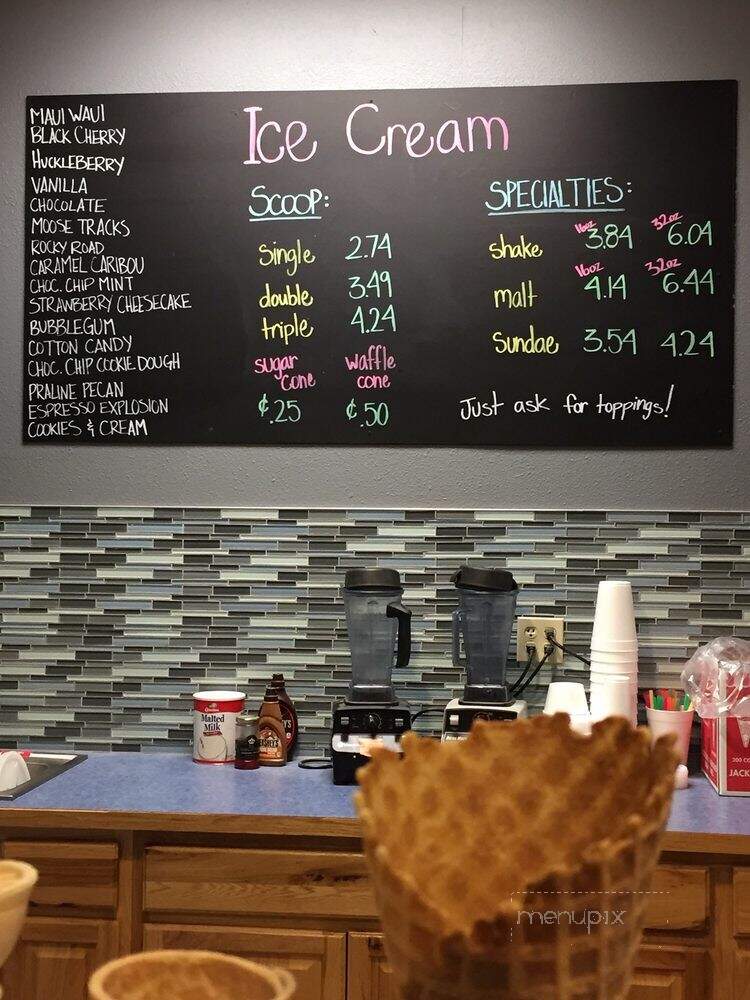 Ice Cream
MAUI WAUI
BLACK CHERRY
HUCKLEBERRY
VANILLA
CHOCOLATE
MOOSE TRACKS
ROCKY ROAD
CARAMEL CARIBOU
CHOC. CHIP MINT
STRAWBERRY CHEESECAKE
BUBBLEGUM
COTTON CANDY
CHOC. CHIP COOKIE DOUGH
PRALINE PECAN
ESPRESSO EXPLOSION
COOKIES & CREAM
SCOOP:
Single 2.74
double 3.49
triple 4.24
sugar cone waffle cone
¢.25 ¢.50
SPECIALTIES:
16oz 32oz
shake 3.84 6.04
16oz 32oz
malt 4.14 6.44
Sundae 3.54 4.24
Just ask for toppings!
Malted
Milk
HERSHEY'S
JACK
menupix